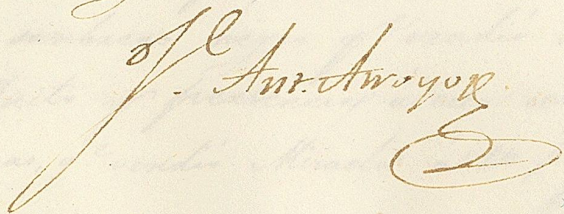 J. Ant. Arroyo